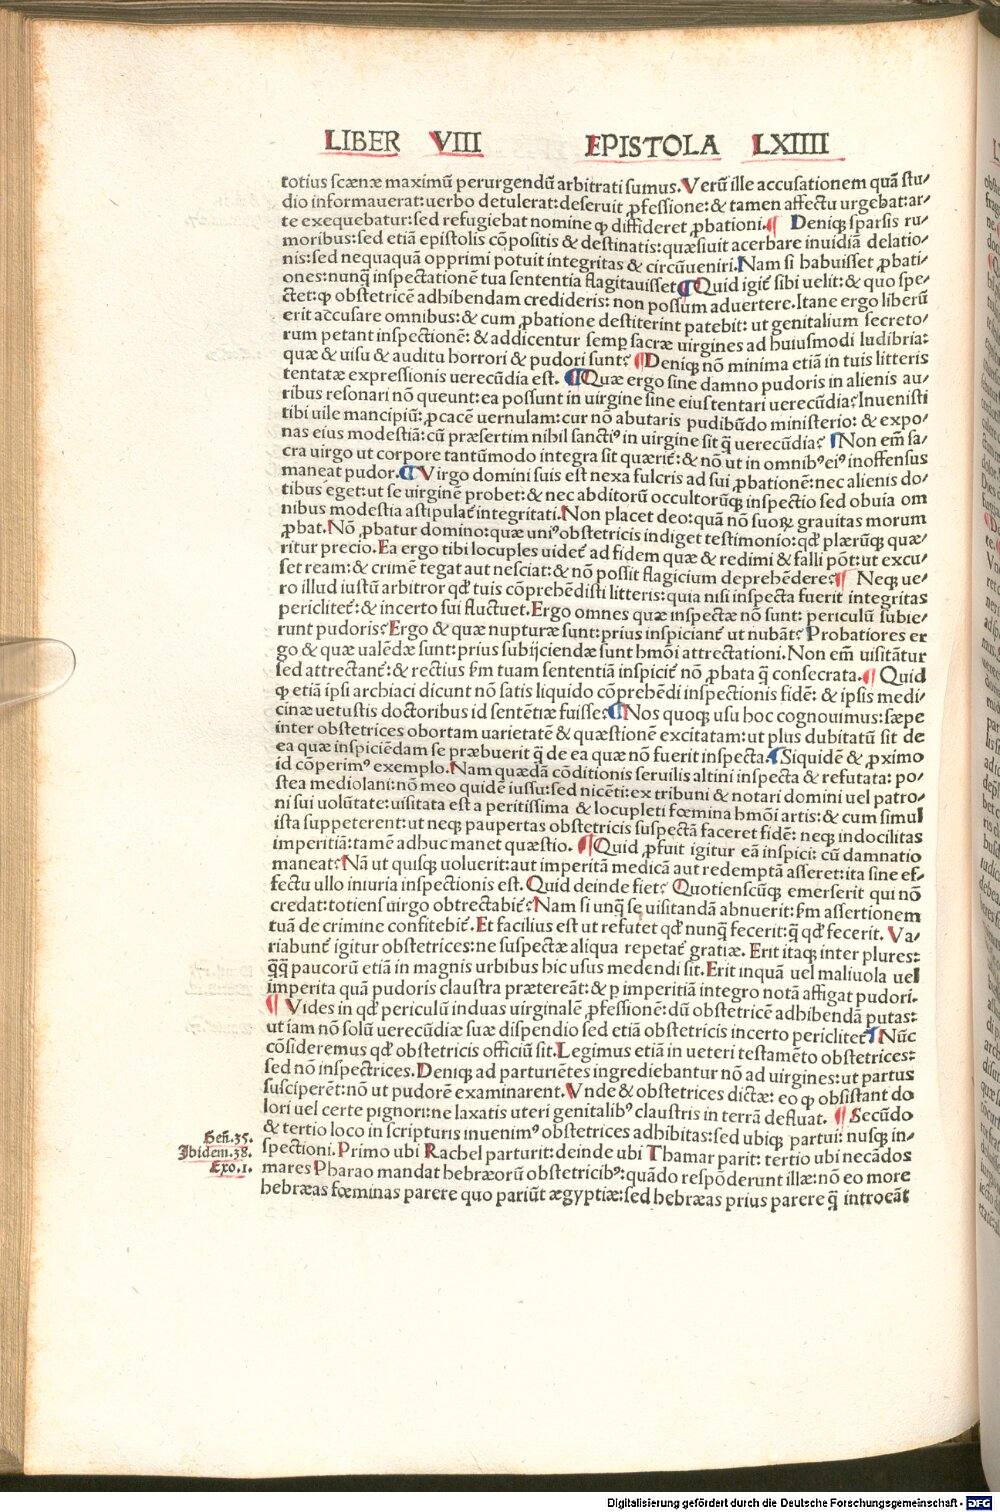 LIBER VIII EPISTOLA LXIIII
totius scænæ maximũ perurgendũ arbitrati sumus. Verũ ille accusationem quã stu/
dio informauerat: uerbo detulerat: deseruit ꝓfessione: & tamen affectu urgebat: ar/
te exequebatur: sed refugiebat nomine qꝫ diffideret ꝓbationi. ¶ Deniqꝫ sparsis ru/
moribus: sed etiã epistolis cõpositis & destinatis: quæsiuit acerbare inuidiã delatio/
nis: sed nequaquã opprimi potuit integritas & circũueniri. Nam si habuisset ꝓbati/
ones: nunꝗ̃ inspectationẽ tua sententia flagitauisset ¶ Quid igit̃ sibi uelit: & quo spe/
ctet: qꝫ obstetricẽ adhibendam credideris: non possum aduertere. Itane ergo liberũ
erit accusare omnibus: & cum ꝓbatione destiterint patebit: ut genitalium secreto/
rum petant inspectionẽ: & addicentur semꝑ sacræ uirgines ad huiusmodi ludibria:
quæ & uisu & auditu horrori & pudori sunt? ¶ Deniqꝫ nõ minima etiã in tuis litteris
tentatæ expressionis uerecũdia est. ¶ Quæ ergo sine damno pudoris in alienis au/
ribus resonari nõ queunt: ea possunt in uirgine sine eius tentari uerecũdia? Inuenisti
tibi uile mancipiũ: ꝓcacẽ uernulam: cur nõ abutaris pudibũdo ministerio: & expo/
nas eius modestiã: cũ præsertim nihil sanctiꝰ in uirgine sit ꝗ̃ uerecũdia? ¶ Non em̃ sa/
cra uirgo ut corpore tantũmodo integra sit quærit̃: & nõ ut in omnibꝰ eiꝰ inoffensus
maneat pudor. ¶ Virgo domini suis est nexa fulcris ad sui ꝓbationẽ: nec alienis do/
tibus eget: ut se uirginẽ probet: & nec abditorũ occultorũqꝫ inspectio sed obuia om
nibus modestia astipulat̃ integritati. Non placet deo: quã nõ suoꝝ grauitas morum
ꝓbat. Nõ ꝓbatur domino: quæ uniꝰ obstetricis indiget testimonio: qđ plærũqꝫ quæ/
ritur precio. Ea ergo tibi locuples uidet̃ ad fidem quæ & redimi & falli põt: ut excu/
set ream: & crimẽ tegat aut nesciat: & nõ possit flagicium deprehẽdere? ¶ Neqꝫ ue/
ro illud iustũ arbitror qđ tuis cõprehẽdisti litteris: quia nisi inspecta fuerit integritas
periclitet̃: & incerto sui fluctuet. Ergo omnes quæ inspectæ nõ sunt: periculũ subie/
runt pudoris? Ergo & quæ nupturæ sunt: prius inspiciant̃ ut nubãt? Probatiores er
go & quæ ualẽdæ sunt: prius subijciendæ sunt hmõi attrectationi. Non em̃ uisitãtur
sed attrectant̃: & rectius ẜm tuam sententiã inspicit̃ nõ ꝓbata ꝗ̃ consecrata. ¶ Quid
qꝫ etiã ipsi archiaci dicunt nõ satis liquido cõprehẽdi inspectionis fidẽ: & ipsis medi/
cinæ uetustis doctoribus id sentẽtiæ fuisse? ¶ Nos quoqꝫ usu hoc cognouimus: sæpe
inter obstetrices obortam uarietatẽ & quæstionẽ excitatam: ut plus dubitatũ sit de
ea quæ inspiciẽdam se præbuerit ꝗ̃ de ea quæ nõ fuerit inspecta. ¶ Siquidẽ & ꝓximo
id cõperimꝰ exemplo. Nam quædã cõditionis seruilis altini inspecta & refutata: po/
stea mediolani: nõ meo quidẽ iussu: sed nicẽti: ex tribuni & notari domini uel patro/
ni sui uolũtate: uisitata est a peritissima & locupleti fœmina hmõi artis: & cum simul
ista suppeterent: ut neqꝫ paupertas obstetricis suspectã faceret fidẽ: neqꝫ indocilitas
imperitiã: tamẽ adhuc manet quæstio. ¶ Quid ꝓfuit igitur eã inspici: cũ damnatio
maneat? Nã ut quisqꝫ uoluerit: aut imperitã medicã aut redemptã asseret: ita sine ef/
fectu ullo iniuria inspectionis est. Quid deinde fiet? Quotienscũqꝫ emerserit qui nõ
credat: totiens uirgo obtrectabit̃? Nam si unꝗ̃ se uisitandã abnuerit: ẜm assertionem
tuã de crimine confitebit̃. Et facilius est ut refutet qđ nunꝗ̃ fecerit: ꝗ̃ qđ fecerit. Va/
riabunt̃ igitur obstetrices: ne suspectæ aliqua repetat̃ gratiæ. Erit itaqꝫ inter plures:
ꝗ̃ꝗ̃ paucorũ etiã in magnis urbibus hic usus medendi sit. Erit inquã uel maliuola uel
imperita quã pudoris claustra prætereãt: & ꝑ imperitiã integro notã affigat pudori.
¶ Vides in qđ periculũ induas uirginalẽ ꝓfessionẽ: dũ obstetricẽ adhibendã putas:
ut iam nõ solũ uerecũdiæ suæ dispendio sed etiã obstetricis incerto periclitet̃ ¶ Nũc
cõsideremus qđ obstetricis officiũ sit. Legimus etiã in ueteri testamẽto obstetrices:
sed nõ inspectrices. Deniqꝫ ad parturiẽtes ingrediebantur nõ ad uirgines: ut partus
susciperẽt: nõ ut pudorẽ examinarent. Vnde & obstetrices dictæ: eo qꝫ obsistant do
lori uel certe pignori: ne laxatis uteri genitalibꝰ claustris in terrã defluat. ¶ Secũdo
& tertio loco in scripturis inuenimꝰ obstetrices adhibitas: sed ubiqꝫ partui: nusqꝫ in/
Geñ. 35.
spectioni. Primo ubi Rachel parturit: deinde ubi Thamar parit: tertio ubi necãdos
Ibidem. 38.
mares Pharao mandat hebræorũ obstetricibꝰ: quãdo respõderunt illæ: nõ eo more
Exo. 1.
hebræas fœminas parere quo pariũt ægyptiæ: sed hebræas prius parere ꝗ̃ introeãt
Digitalisierung gefördert durch die Deutsche Forschungsgemeinschaft - DFG